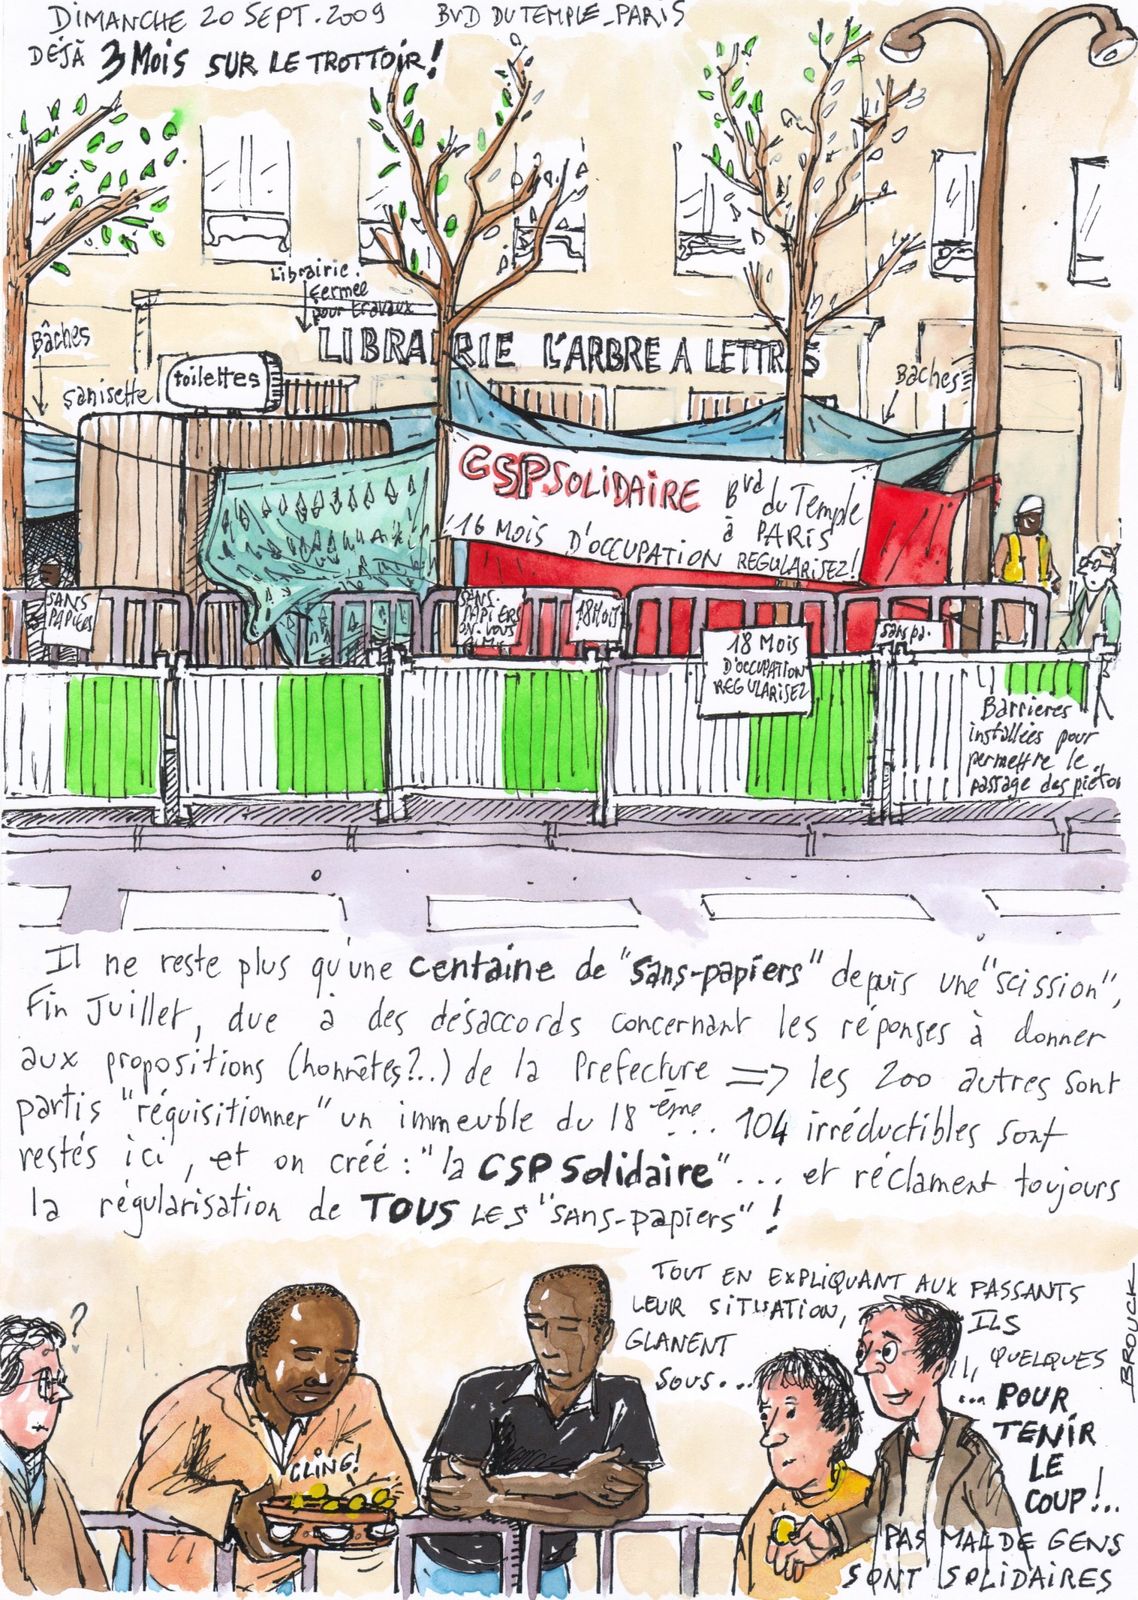 DIMANCHE 20 SEPT. 2009 BVD DU TEMPLE_PARIS
DÉJÀ 3 MOIS SUR LE TROTTOIR!
Librairie.
fermée
pour travaux
Bâches
LIBRAIRIE L'ARBRE A LETTRES
sanisette
toilettes
Baches
CSP SOLIDAIRE Bvd du Temple
à PARIS
16 MOIS D'OCCUPATION REGULARISEZ!
SANS
PAPIERS
SANS.
PAPIERS
ON. VOUS
18 Mois
18 Mois
D'OCCUPATION
REGULARISEZ
sans pa.
Barrieres
installées pour
permettre le
passage des piéton
Il ne reste plus qu'une centaine de "sans-papiers" depuis une "scission",
Fin Juillet, due à des désaccords concernant les réponses à donner
aux propositions (honnêtes?..) de la Prefecture => les 200 autres sont
partis "réquisitionner" un immeuble du 18ème... 104 irréductibles sont
restés ici, et on créé: "la CSP Solidaire"... et réclament toujours
la régularisation de TOUS LES "SANS-papiers" !
?
CLING!
TOUT EN EXPLIQUANT AUX PASSANTS
LEUR SITUATION, ILS
GLANENT QUELQUES
SOUS... ...POUR
TENIR
LE
COUP!..
PAS MAL DE GENS
SONT SOLIDAIRES
BROUCK